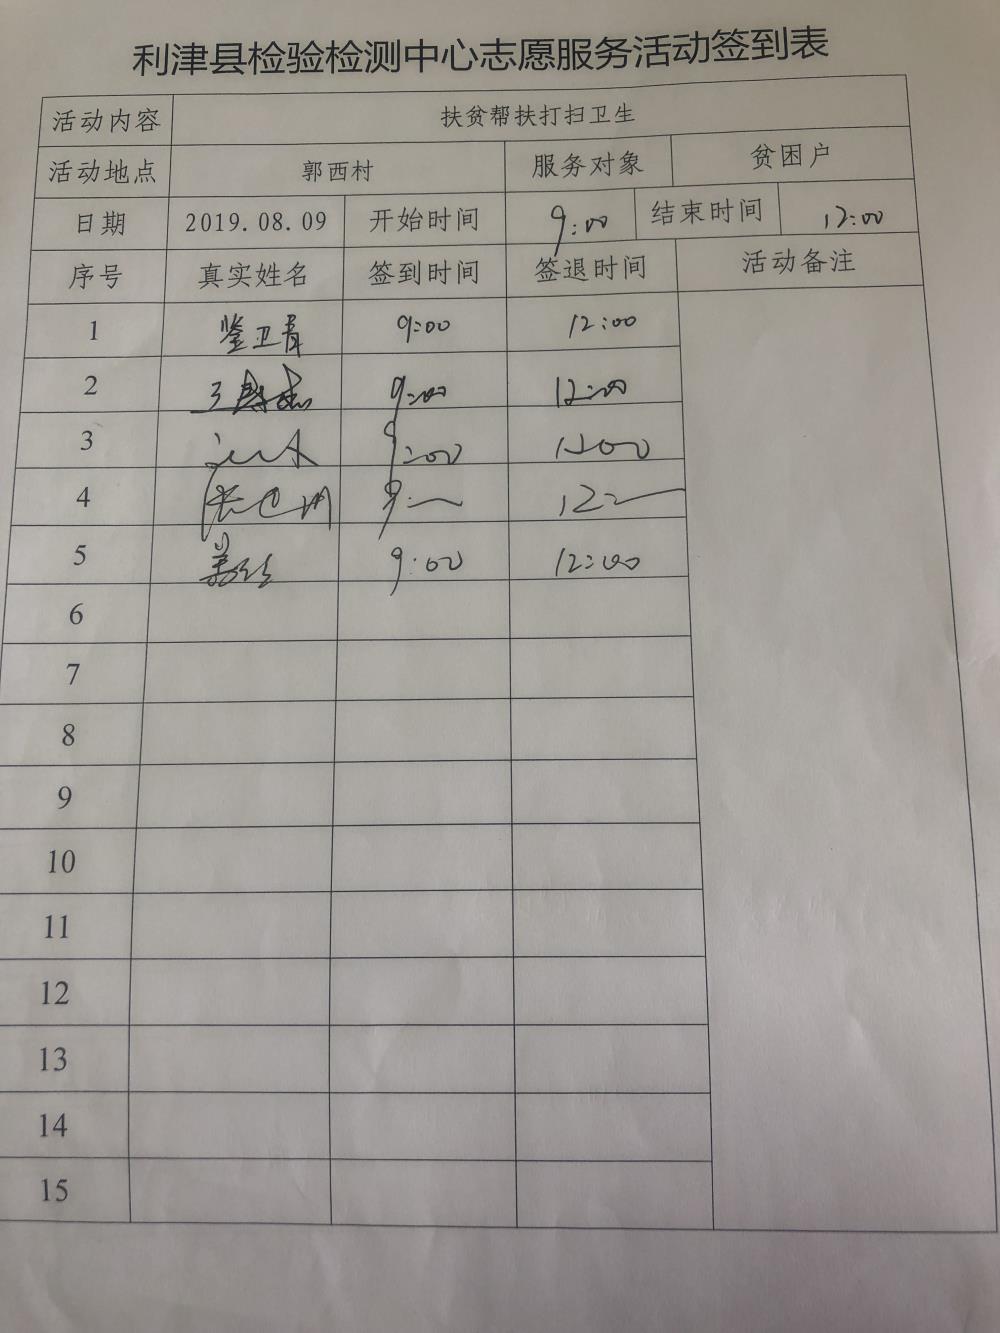 利津县检验检测中心志愿服务活动签到表
活动内容 扶贫帮扶打扫卫生
活动地点 郭西村 服务对象 贫困户
日期 2019.08.09 开始时间 9:00 结束时间 12:00
序号 真实姓名 签到时间 签退时间 活动备注
1 卫青 9:00 12:00
2 9:00 12:00
3 9:00 1200
4
5 9:00 12:00
6
7
8
9
10
11
12
13
14
15